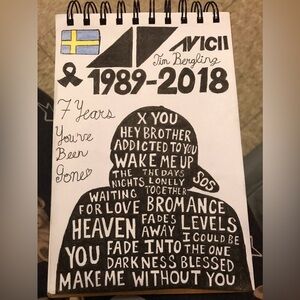 AVICII
Tim Bergling
1989-2018
7 Years
You've
Been
Gone
X YOU
HEY BROTHER
ADDICTED TO YOU
WAKE ME UP
THE NIGHTS THE DAYS
LONELY TOGETHER SOS
WAITING FOR LOVE BROMANCE
HEAVEN FADES AWAY LEVELS
YOU FADE INTO DARKNESS I COULD BE THE ONE
BLESSED
MAKE ME WITHOUT YOU